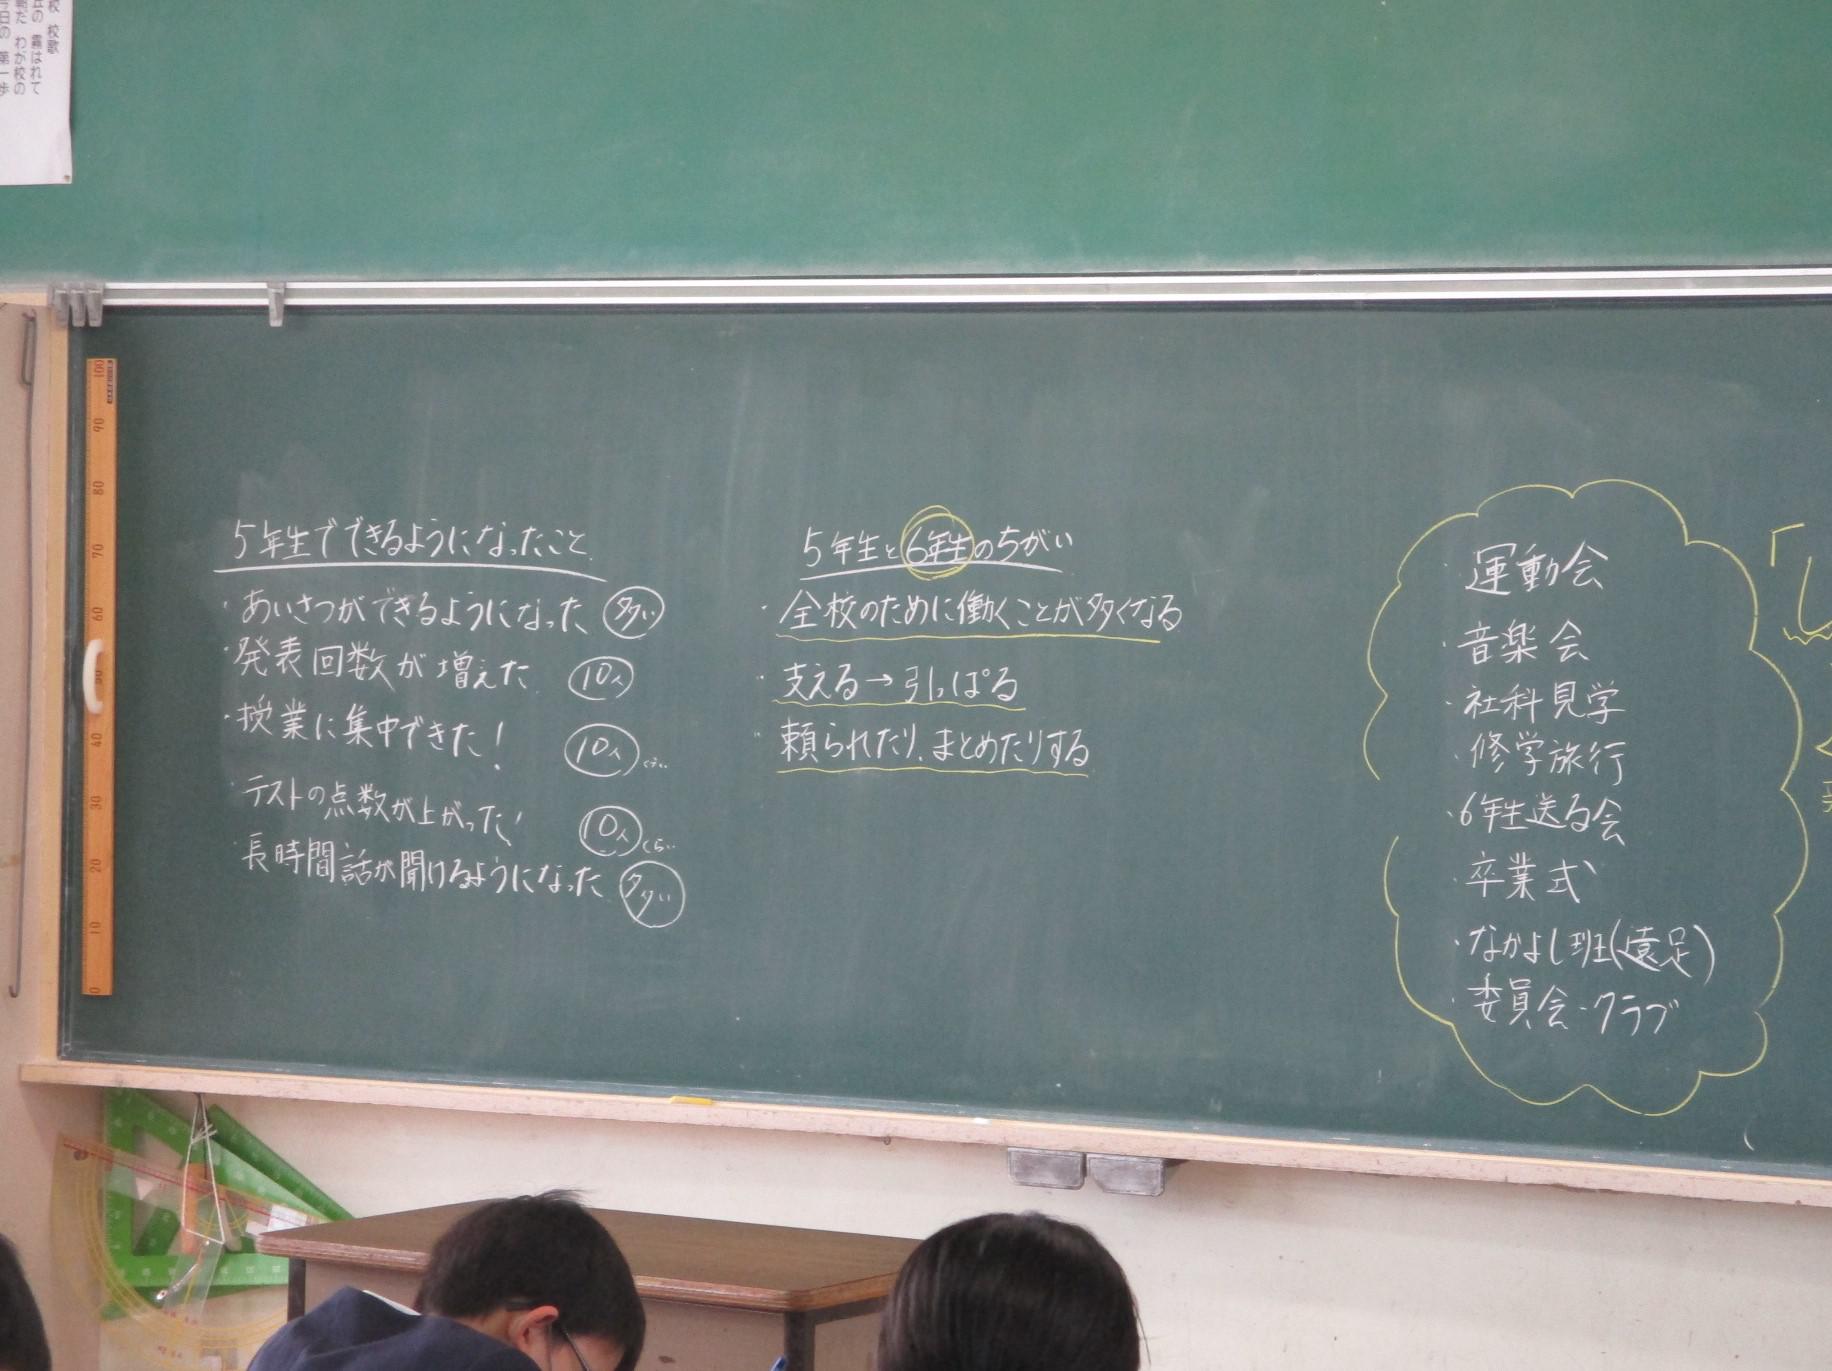 校 校歌
丘の 霧はれて
朝だ わが校の
今日の 第一歩
5年生でできるようになったこと
・あいさつができるようになった 多い
・発表回数が増えた 10人
・授業に集中できた! 10人ぐらい
・テストの点数が上がった! 10人くらい
・長時間話が聞けるようになった 多い
5年生と6年生のちがい
・全校のために働くことが多くなる
・支える→引っぱる
・頼られたり、まとめたりする
・運動会
・音楽会
・社科見学
・修学旅行
・6年生送る会
・卒業式
・なかよし班(遠足)
・委員会・クラブ
「し
100
90
80
70
60
50
40
30
20
10
0